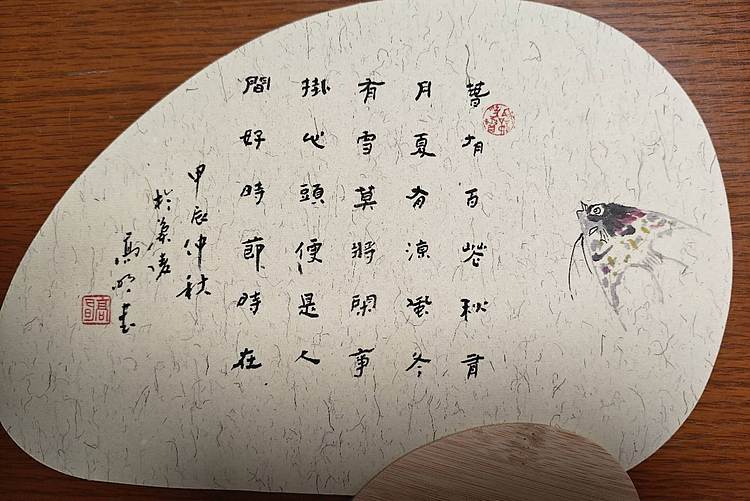 春有百花秋有
月夏有凉風冬
有雪莫將閑事
掛心頭便是人
間好時節時在
甲辰仲秋
於
高明書